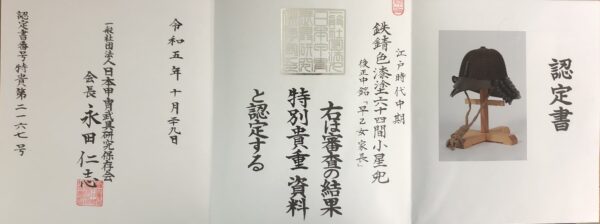 認定書
江戸時代中期
鉄錆色漆塗六十四間小星兜
後正中銘「早乙女家長」
右は審査の結果
特別貴重資料
と認定する
令和五年十月廿九日
一般社団法人日本甲冑武具研究保存会
会長 永田仁志
認定書番号特貴第二一六七号